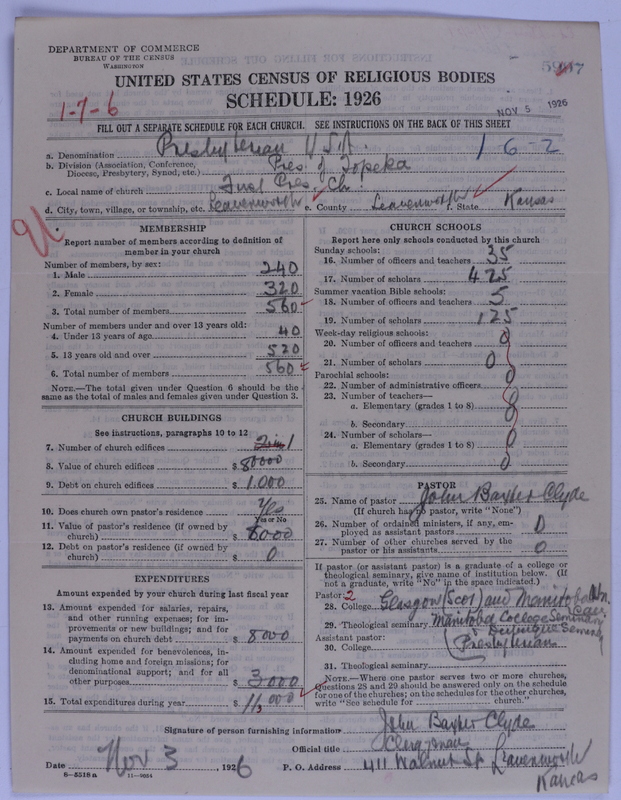 DEPARTMENT OF COMMERCE
BUREAU OF THE CENSUS
WASHINGTON
UNITED STATES CENSUS OF RELIGIOUS BODIES
SCHEDULE: 1926
1-7-6
NOV 5 1926
FILL OUT A SEPARATE SCHEDULE FOR EACH CHURCH. SEE INSTRUCTIONS ON THE BACK OF THIS SHEET
a. Denomination Presbyterian U.S.A. 1 6-2
b. Division (Association, Conference, Diocese, Presbytery, Synod, etc.) Pres. of Topeka
c. Local name of church First Pres. Ch.
d. City, town, village, or township, etc. Leavenworth e. County Leavenworth f. State Kansas
MEMBERSHIP
Report number of members according to definition of
member in your church
Number of members, by sex:
1. Male 240
2. Female 320
3. Total number of members 560
Number of members under and over 13 years old:
4. Under 13 years of age 40
5. 13 years old and over 520
6. Total number of members 560
NOTE.—The total given under Question 6 should be the
same as the total of males and females given under Question 3.
CHURCH BUILDINGS
See instructions, paragraphs 10 to 12
7. Number of church edifices 1
8. Value of church edifices $ 80000
9. Debt on church edifices $ 1.000
10. Does church own pastor's residence Yes
Yes or No
11. Value of pastor's residence (if owned by
church) $ 6000
12. Debt on pastor's residence (if owned by
church) $ 0
EXPENDITURES
Amount expended by your church during last fiscal year
13. Amount expended for salaries, repairs,
and other running expenses; for im-
provements or new buildings; and for
payments on church debt $ 8000
14. Amount expended for benevolences, in-
cluding home and foreign missions; for
denominational support; and for all
other purposes $ 3000
15. Total expenditures during year $ 11,000
CHURCH SCHOOLS
Report here only schools conducted by this church
Sunday schools:
16. Number of officers and teachers 35
17. Number of scholars 425
Summer vacation Bible schools:
18. Number of officers and teachers 5
19. Number of scholars 125
Week-day religious schools:
20. Number of officers and teachers 0
21. Number of scholars 0
Parochial schools:
22. Number of administrative officers 0
23. Number of teachers—
a. Elementary (grades 1 to 8) 0
b. Secondary 0
24. Number of scholars—
a. Elementary (grades 1 to 8) 0
b. Secondary 0
PASTOR
25. Name of pastor John Baxter Clyde
(If church has no pastor, write "None")
26. Number of ordained ministers, if any, em-
ployed as assistant pastors 0
27. Number of other churches served by the
pastor or his assistants 0
If pastor (or assistant pastor) is a graduate of a college or
theological seminary, give name of institution below. (If
not a graduate, write "No" in the space indicated.)
Pastor: 2
28. College Glasgow (Scot) and Manitoba
29. Theological seminary Manitoba College Seminary
Dubuque Seminary
Assistant pastor:
30. College (Presbyterian
31. Theological seminary
NOTE.—Where one pastor serves two or more churches,
Questions 28 and 29 should be answered only on the schedule
for one of the churches; on the schedules for the other churches,
write "See schedule for church."
Signature of person furnishing information John Baxter Clyde
Official title Clergyman
Date Nov 3, 1926 P. O. Address 411 Walnut St Leavenworth
Kansas
6-5518a 11-9664